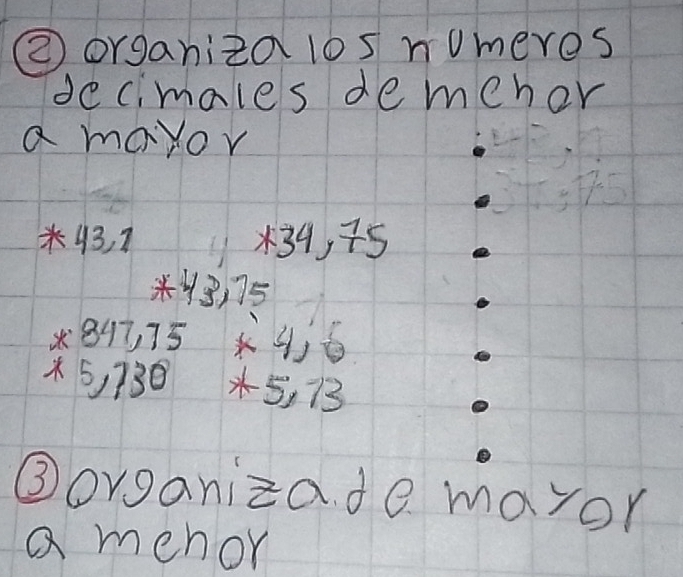 ② organiza los numeros
decimales de menor
a mayor
*43,1 *34,75
*43,75
*847,75 *4,6
*5,730 *5,73
③ organiza.de mayor
a menor